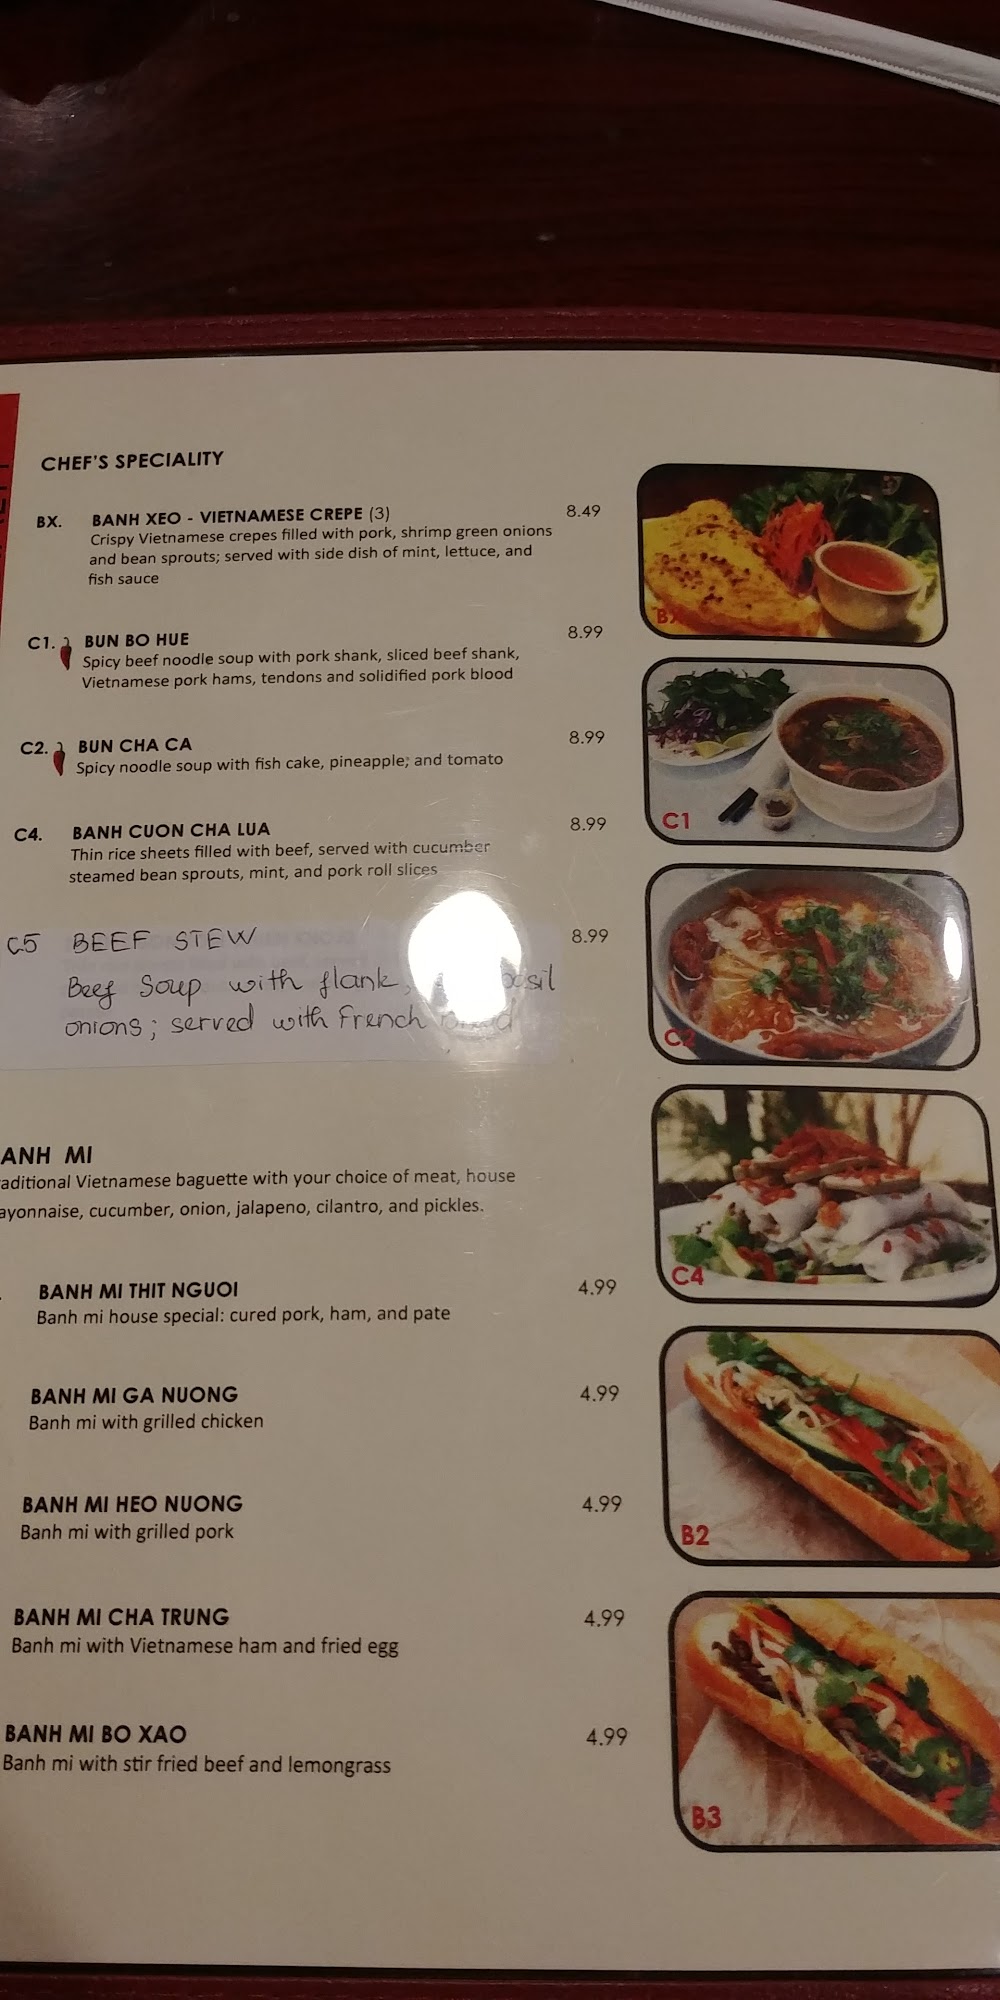 CHEF'S SPECIALITY
BX. BANH XEO - VIETNAMESE CREPE (3) 8.49
Crispy Vietnamese crepes filled with pork, shrimp green onions
and bean sprouts; served with side dish of mint, lettuce, and
fish sauce
C1. BUN BO HUE 8.99
Spicy beef noodle soup with pork shank, sliced beef shank,
Vietnamese pork hams, tendons and solidified pork blood
C2. BUN CHA CA 8.99
Spicy noodle soup with fish cake, pineapple; and tomato
C4. BANH CUON CHA LUA 8.99
Thin rice sheets filled with beef, served with cucumber
steamed bean sprouts, mint, and pork roll slices
C5 BEEF STEW 8.99
Beef Soup with flank, basil
onions; served with French
ANH MI
aditional Vietnamese baguette with your choice of meat, house
ayonnaise, cucumber, onion, jalapeno, cilantro, and pickles.
BANH MI THIT NGUOI 4.99
Banh mi house special: cured pork, ham, and pate
BANH MI GA NUONG 4.99
Banh mi with grilled chicken
BANH MI HEO NUONG 4.99
Banh mi with grilled pork
BANH MI CHA TRUNG 4.99
Banh mi with Vietnamese ham and fried egg
BANH MI BO XAO 4.99
Banh mi with stir fried beef and lemongrass
BX
C1
C2
C4
B2
B3